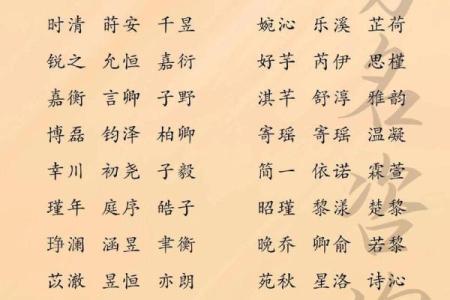 时清 蒔安 千昱 婉沁 乐溪 芷荷
锐之 允恒 嘉衍 好芋 芮伊 思槿
嘉衡 言卿 子野 淇芊 舒淳 雅韵
博磊 钧泽 柏卿 寄瑶 寄瑶 温凝
幸川 初尧 子毅 简一 依诺 霖萱
瑾年 庭序 皓子 昭瑾 黎漾 楚黎
琤澜 涵昱 聿衡 晚乔 卿俞 若黎
苡澈 昱恒 亦朗 苑秋 星洛 诗沁
名
咨